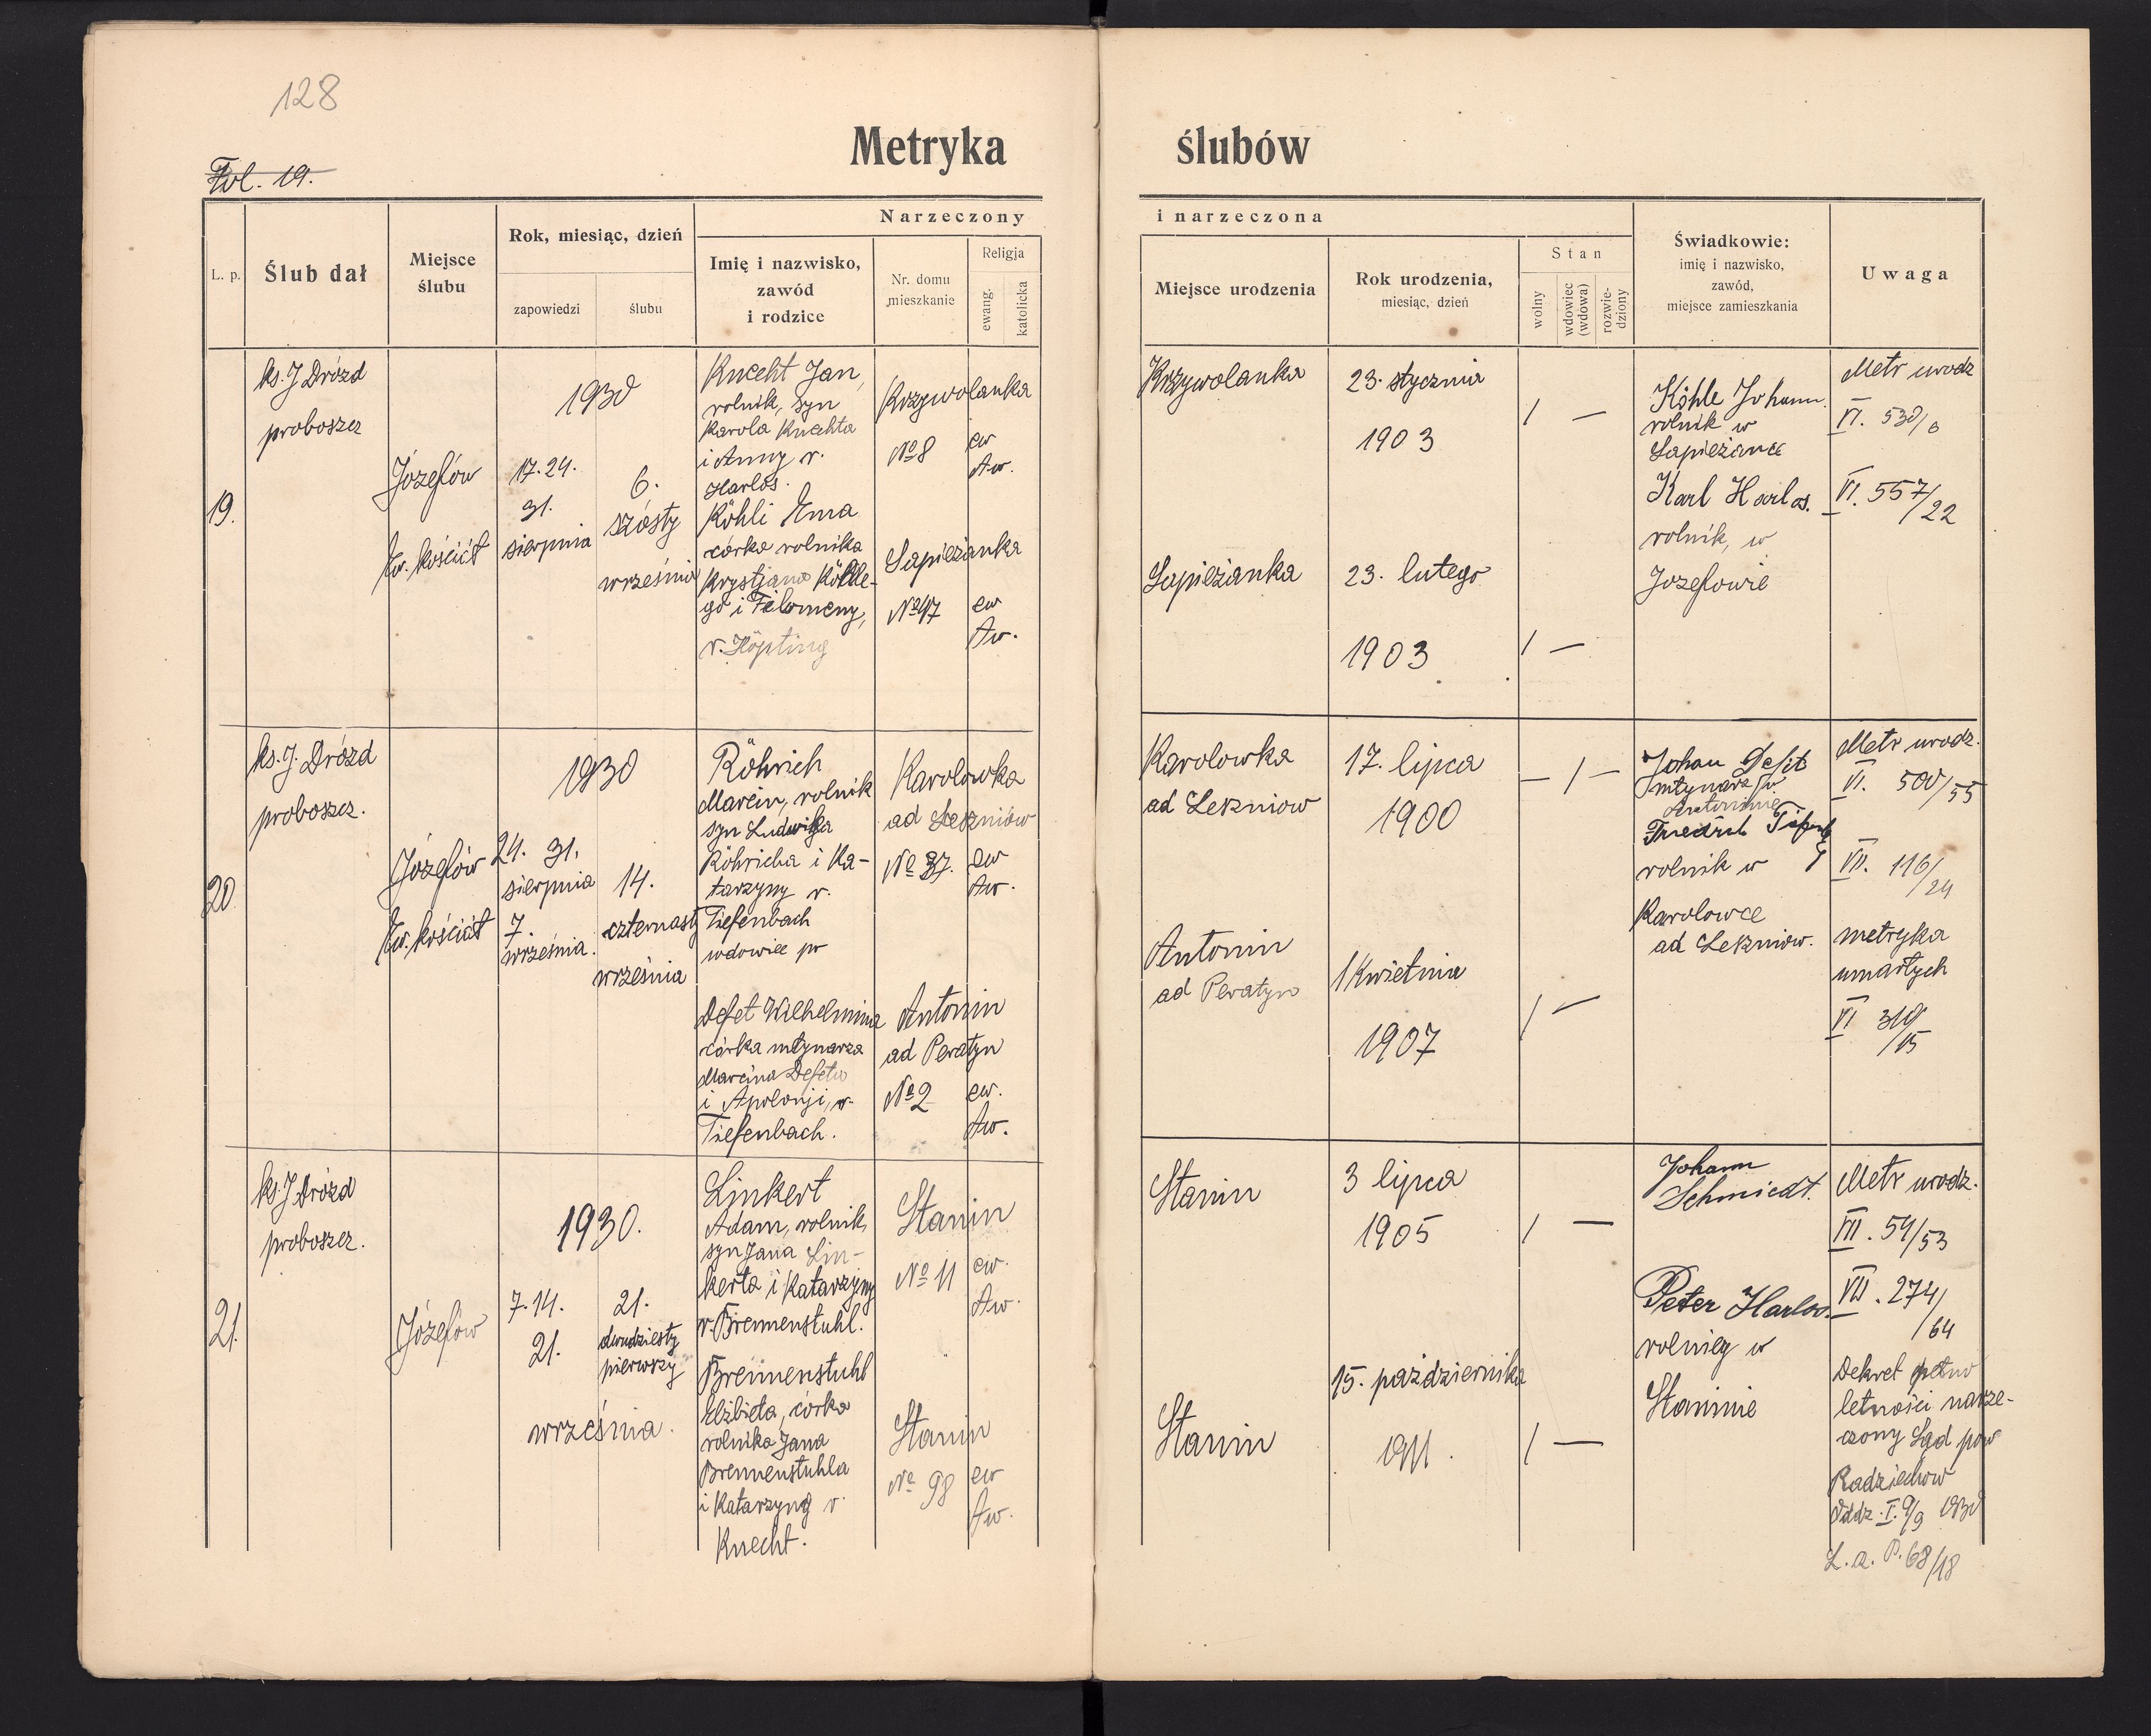 128
Fol. 19.
Metryka ślubów
L. p.
Ślub dał
Miejsce
ślubu
Rok, miesiąc, dzień
zapowiedzi
ślubu
Narzeczony
Imię i nazwisko,
zawód
i rodzice
Nr. domu
mieszkanie
Religja
ewang.
katolicka
i narzeczona
Miejsce urodzenia
Rok urodzenia,
miesiąc, dzień
Stan
wolny
wdowiec
(wdowa)
rozwie-
dziony
Świadkowie:
imię i nazwisko,
zawód,
miejsce zamieszkania
Uwaga
19.
ks. J Drózd
proboszcz
Józefów
tw. kościół
1930
17. 24.
31.
sierpnia
6.
szósty
września
Knecht Jan,
rolnik, syn
Karola Knechta
i Anny r.
Harlos.
Krzywolanka
No 8
ew
Aw.
Köhli Ema
córka rolnika
Krystjana Köhle-
go i Filomeny,
r. Höpting
Sapieżanka
No 47
ew
Aw.
Krzywolanka
23. stycznia
1903
/ —
Sapieżanka
23. lutego
1903
/ —
Köhle Johann
rolnik w
Sapieżance
Karl Harlos.
rolnik, w
Jozefowie
Metr urodz
VI. 530/6
VI. 557/22
20
ks. J. Drózd
proboszcz.
Józefów
tw. kościół
1930
24. 31.
sierpnia
7.
września.
14.
czternasty
września
Röhrich
Marcin, rolnik
syn Ludwika
Röhricha i Ka-
tarzyny r.
Tiefenbach
wdowiec po
Karolowka
ad Leszniów
No 37.
ew
Aw.
Defet Wilhelmina
córka młynarza
Marcina Defeta
i Apolonji, r.
Tiefenbach.
Antonin
ad Peratyn
No 2
ew.
Aw.
Karolowka
ad Leszniow
17. lipca
1900
— / —
Antonin
ad Peratyn
1 Kwietnia
1907
/ —
Johan Defit
młynarz w
Antoninie
rolnik w
Karolowce
ad Leszniow.
Metr urodz.
VI. 500/55
VII. 116/24
metryka
umarłych
VI 310/15
21.
ks. J Drózd
proboszcz.
Józefów
1930.
7. 14.
21.
21.
dwudziesty
pierwszy
września.
Linkert
Adam, rolnik,
syn Jana Lin-
kerta i Katarzyny
r. Brennenstuhl.
Stanin
No 11
ew.
Aw.
Brennenstuhl
Elżbieta, córka
rolnika Jana
Brennenstuhla
i Katarzyny r.
Knecht.
Stanin
No 98
ew
Aw.
Stanin
3 lipca
1905
/ —
Stanin
15. października
1911.
/ —
Johann
Schmiedt.
Peter Harlos.
rolnicy w
Staninie
Metr urodz.
VII. 54/53
VII. 274/64
Dekret pełno
letności narze-
czony Sąd pow
Radziechow
Oddz. I. 9/9 1930
L. a. P. 68/18